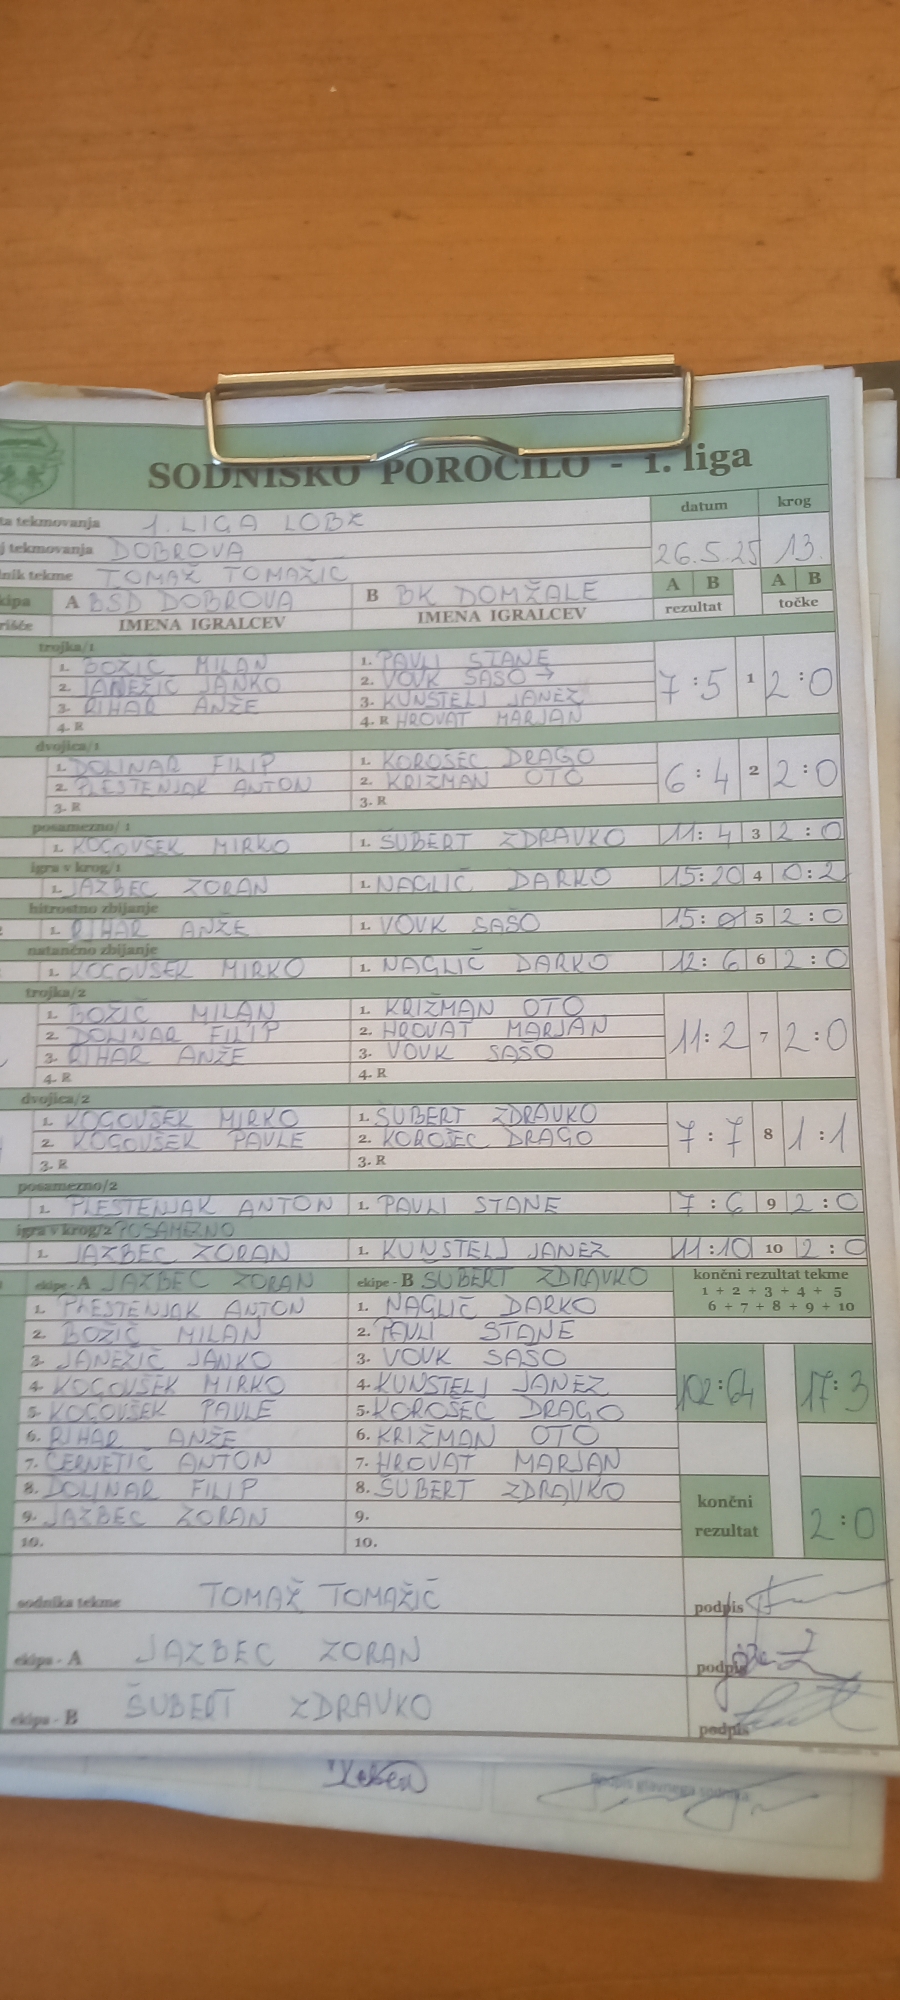 SODNIŠKO POROČILO - 1. liga
datum krog
ta tekmovanja 1. LIGA LOBZ
j tekmovanja DOBROVA 26.5.25 13.
nik tekme TOMAŽ TOMAŽIČ
kipa A BŠD DOBROVA B BK DOMŽALE A B A B
rišče IMENA IGRALCEV IMENA IGRALCEV rezultat točke
trojka/1
1. BOŽIČ MILAN 1. PAVLI STANE
2. JANEŽIČ JANKO 2. VOVK SAŠO → 7:5 1 2:0
3. RIHAR ANŽE 3. KUNSTELJ JANEZ
4. R 4. R HROVAT MARJAN
dvojica/1
1. DOLINAR FILIP 1. KOROŠEC DRAGO
2. PLESTENJAK ANTON 2. KRIŽMAN OTO 6:4 2 2:0
3. R 3. R
posamezno/1
1. KOGOVŠEK MIRKO 1. ŠUBERT ZDRAVKO 11:4 3 2:0
igra v krog/1
1. JAZBEC ZORAN 1. NAGLIČ DARKO 15:20 4 0:2
hitrostno zbijanje
1. RIHAR ANŽE 1. VOVK SAŠO 15: 5 2:0
natančno zbijanje
1. KOGOVŠEK MIRKO 1. NAGLIČ DARKO 12:6 6 2:0
trojka/2
1. BOŽIČ MILAN 1. KRIŽMAN OTO
2. DOLINAR FILIP 2. HROVAT MARJAN 11:2 7 2:0
3. RIHAR ANŽE 3. VOVK SAŠO
4. R 4. R
dvojica/2
1. KOGOVŠEK MIRKO 1. ŠUBERT ZDRAVKO
2. KOGOVŠEK PAVLE 2. KOROŠEC DRAGO 7:7 8 1:1
3. R 3. R
posamezno/2
1. PLESTENJAK ANTON 1. PAVLI STANE 7:6 9 2:0
igra v krog/2 POSAMEZNO
1. JAZBEC ZORAN 1. KUNSTELJ JANEZ 11:10 10 2:0
ekipe - A JAZBEC ZORAN ekipe - B ŠUBERT ZDRAVKO končni rezultat tekme
1 + 2 + 3 + 4 + 5
6 + 7 + 8 + 9 + 10
1. PLESTENJAK ANTON 1. NAGLIČ DARKO
2. BOŽIČ MILAN 2. PAVLI STANE
3. JANEŽIČ JANKO 3. VOVK SAŠO
4. KOGOVŠEK MIRKO 4. KUNSTELJ JANEZ 102:64 17:3
5. KOGOVŠEK PAVLE 5. KOROŠEC DRAGO
6. RIHAR ANŽE 6. KRIŽMAN OTO
7. ČERNETIČ ANTON 7. HROVAT MARJAN
8. DOLINAR FILIP 8. ŠUBERT ZDRAVKO
9. JAZBEC ZORAN 9.
10. 10.
končni rezultat 2:0
sodnika tekme TOMAŽ TOMAŽIČ podpis
ekipa - A JAZBEC ZORAN podpis
ekipa - B ŠUBERT ZDRAVKO podpis
podpis glavnega sodnika